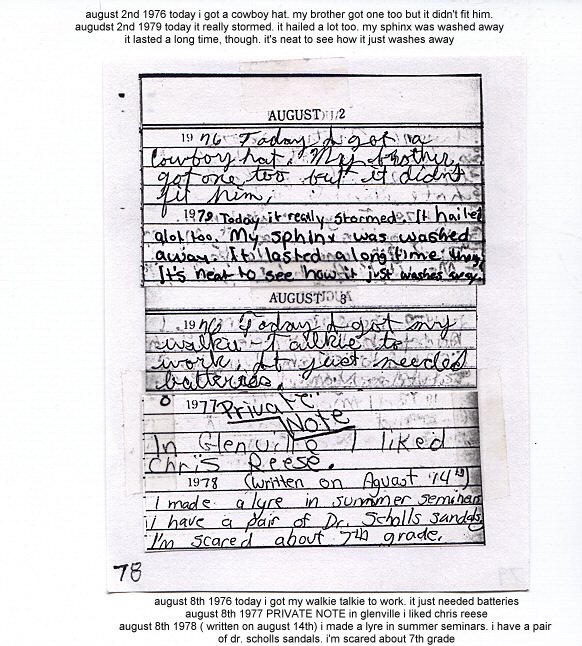 august 2nd 1976 today i got a cowboy hat. my brother got one too but it didn't fit him.
augudst 2nd 1979 today it really stormed. it hailed a lot too. my sphinx was washed away
it lasted a long time, though. it's neat to see how it just washes away
AUGUST 2
1976 Today I got a
cowboy hat. My brother
got one too but it didn't
fit him.
1979 Today it really stormed. It hailed
alot too. My sphinx was washed
away. It lasted a long time though.
It's neat to see how it just washes away.
AUGUST 3
1976 Today I got my
walkie-talkie to
work. It just needed
batteries.
1977 Private
Note
In Glenville I liked
Chris Reese.
1978 (written on Aguast 14th)
I made a lyre in summer seminars
I have a pair of Dr. Scholls sandals.
I'm scared about 7th grade.
78
august 8th 1976 today i got my walkie talkie to work. it just needed batteries
august 8th 1977 PRIVATE NOTE in glenville i liked chris reese
august 8th 1978 ( written on august 14th) i made a lyre in summer seminars. i have a pair
of dr. scholls sandals. i'm scared about 7th grade